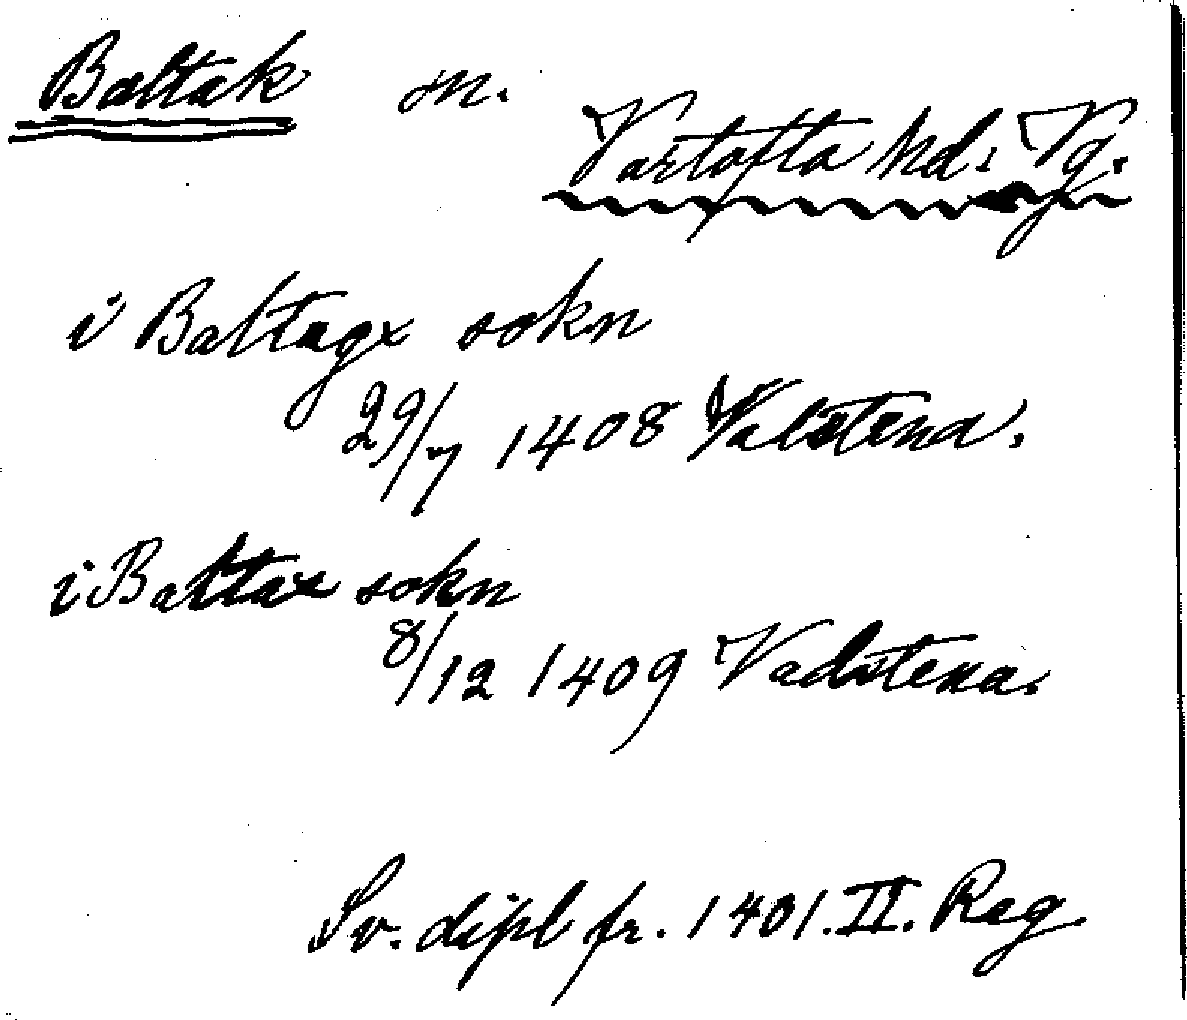 Baltak sn.
Vartofta hd. Vg.
i Baltagx sokn
29/7 1408 Valstena.
i Baltax sokn
8/12 1409 Vadstena.
Sv. dipl fr. 1401. II. Reg